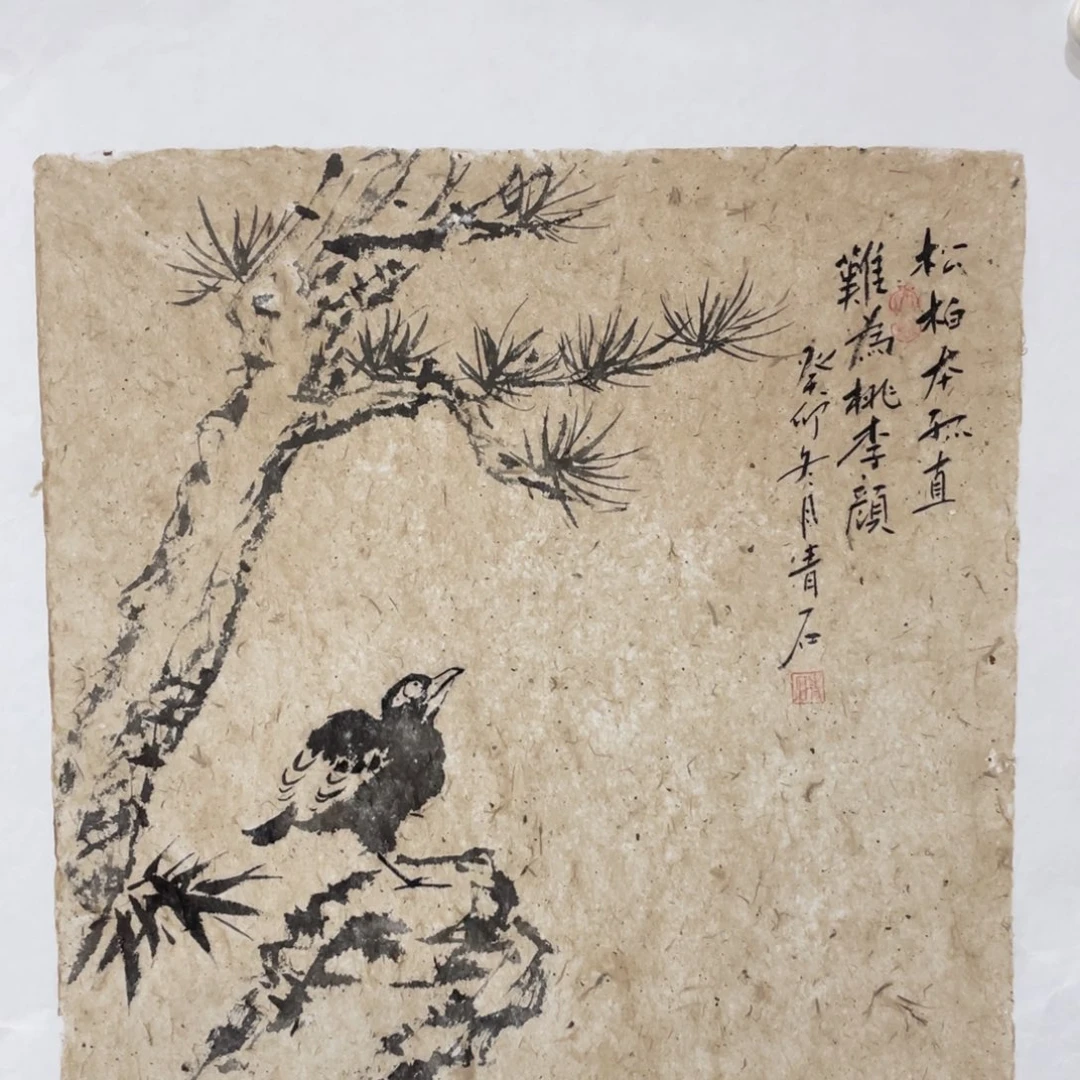 松柏本孤直
難為桃李顔
癸卯冬月青石